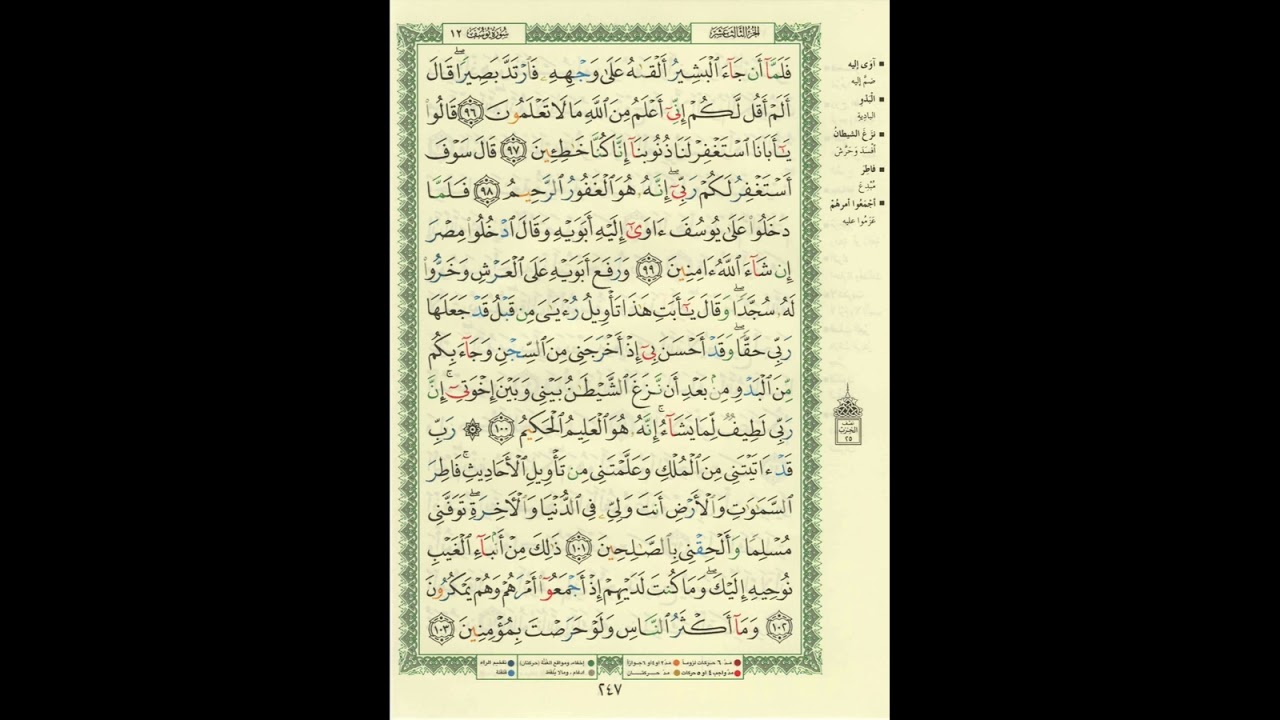 الجزء الثالث عشر
سورة يوسف ١٢
فَلَمَّآ أَن جَآءَ ٱلۡبَشِيرُ أَلۡقَىٰهُ عَلَىٰ وَجۡهِهِۦ فَٱرۡتَدَّ بَصِيرٗاۖ قَالَ
أَلَمۡ أَقُل لَّكُمۡ إِنِّيٓ أَعۡلَمُ مِنَ ٱللَّهِ مَا لَا تَعۡلَمُونَ ٩٦ قَالُواْ
يَٰٓأَبَانَا ٱسۡتَغۡفِرۡ لَنَا ذُنُوبَنَآ إِنَّا كُنَّا خَٰطِـِٔينَ ٩٧ قَالَ سَوۡفَ
أَسۡتَغۡفِرُ لَكُمۡ رَبِّيٓۖ إِنَّهُۥ هُوَ ٱلۡغَفُورُ ٱلرَّحِيمُ ٩٨ فَلَمَّا
دَخَلُواْ عَلَىٰ يُوسُفَ ءَاوَىٰٓ إِلَيۡهِ أَبَوَيۡهِ وَقَالَ ٱدۡخُلُواْ مِصۡرَ
إِن شَآءَ ٱللَّهُ ءَامِنِينَ ٩٩ وَرَفَعَ أَبَوَيۡهِ عَلَى ٱلۡعَرۡشِ وَخَرُّواْ
لَهُۥ سُجَّدٗاۖ وَقَالَ يَٰٓأَبَتِ هَٰذَا تَأۡوِيلُ رُءۡيَٰيَ مِن قَبۡلُ قَدۡ جَعَلَهَا
رَبِّي حَقّٗاۖ وَقَدۡ أَحۡسَنَ بِيٓ إِذۡ أَخۡرَجَنِي مِنَ ٱلسِّجۡنِ وَجَآءَ بِكُم
مِّنَ ٱلۡبَدۡوِ مِنۢ بَعۡدِ أَن نَّزَغَ ٱلشَّيۡطَٰنُ بَيۡنِي وَبَيۡنَ إِخۡوَتِيٓۚ إِنَّ
رَبِّي لَطِيفٞ لِّمَا يَشَآءُۚ إِنَّهُۥ هُوَ ٱلۡعَلِيمُ ٱلۡحَكِيمُ ١٠٠ ۞ رَبِّ
قَدۡ ءَاتَيۡتَنِي مِنَ ٱلۡمُلۡكِ وَعَلَّمۡتَنِي مِن تَأۡوِيلِ ٱلۡأَحَادِيثِۚ فَاطِرَ
ٱلسَّمَٰوَٰتِ وَٱلۡأَرۡضِ أَنتَ وَلِيِّۦ فِي ٱلدُّنۡيَا وَٱلۡأٓخِرَةِۖ تَوَفَّنِي
مُسۡلِمٗا وَأَلۡحِقۡنِي بِٱلصَّٰلِحِينَ ١٠١ ذَٰلِكَ مِنۡ أَنۢبَآءِ ٱلۡغَيۡبِ
نُوحِيهِ إِلَيۡكَۖ وَمَا كُنتَ لَدَيۡهِمۡ إِذۡ أَجۡمَعُوٓاْ أَمۡرَهُمۡ وَهُمۡ يَمۡكُرُونَ
١٠٢ وَمَآ أَكۡثَرُ ٱلنَّاسِ وَلَوۡ حَرَصۡتَ بِمُؤۡمِنِينَ ١٠٣
آوى إليه
ضمّ إليه
البَدْو
البادية
نزغ الشيطان
أفسد وحرّش
فاطر
مُبْدِع
أجمعوا أمرهم
عزموا عليه
نصف
الحزب
٢٥
مد ٦ حركات لزوماً
مد ٢ او ٤ او ٦ جوازاً
إخفاء، ومواقع الغنة (حركتان)
تفخيم الراء
مد واجب ٤ او ٥ حركات
مد حركتان
ادغام، وما لا يلفظ
قلقلة
٢٤٧